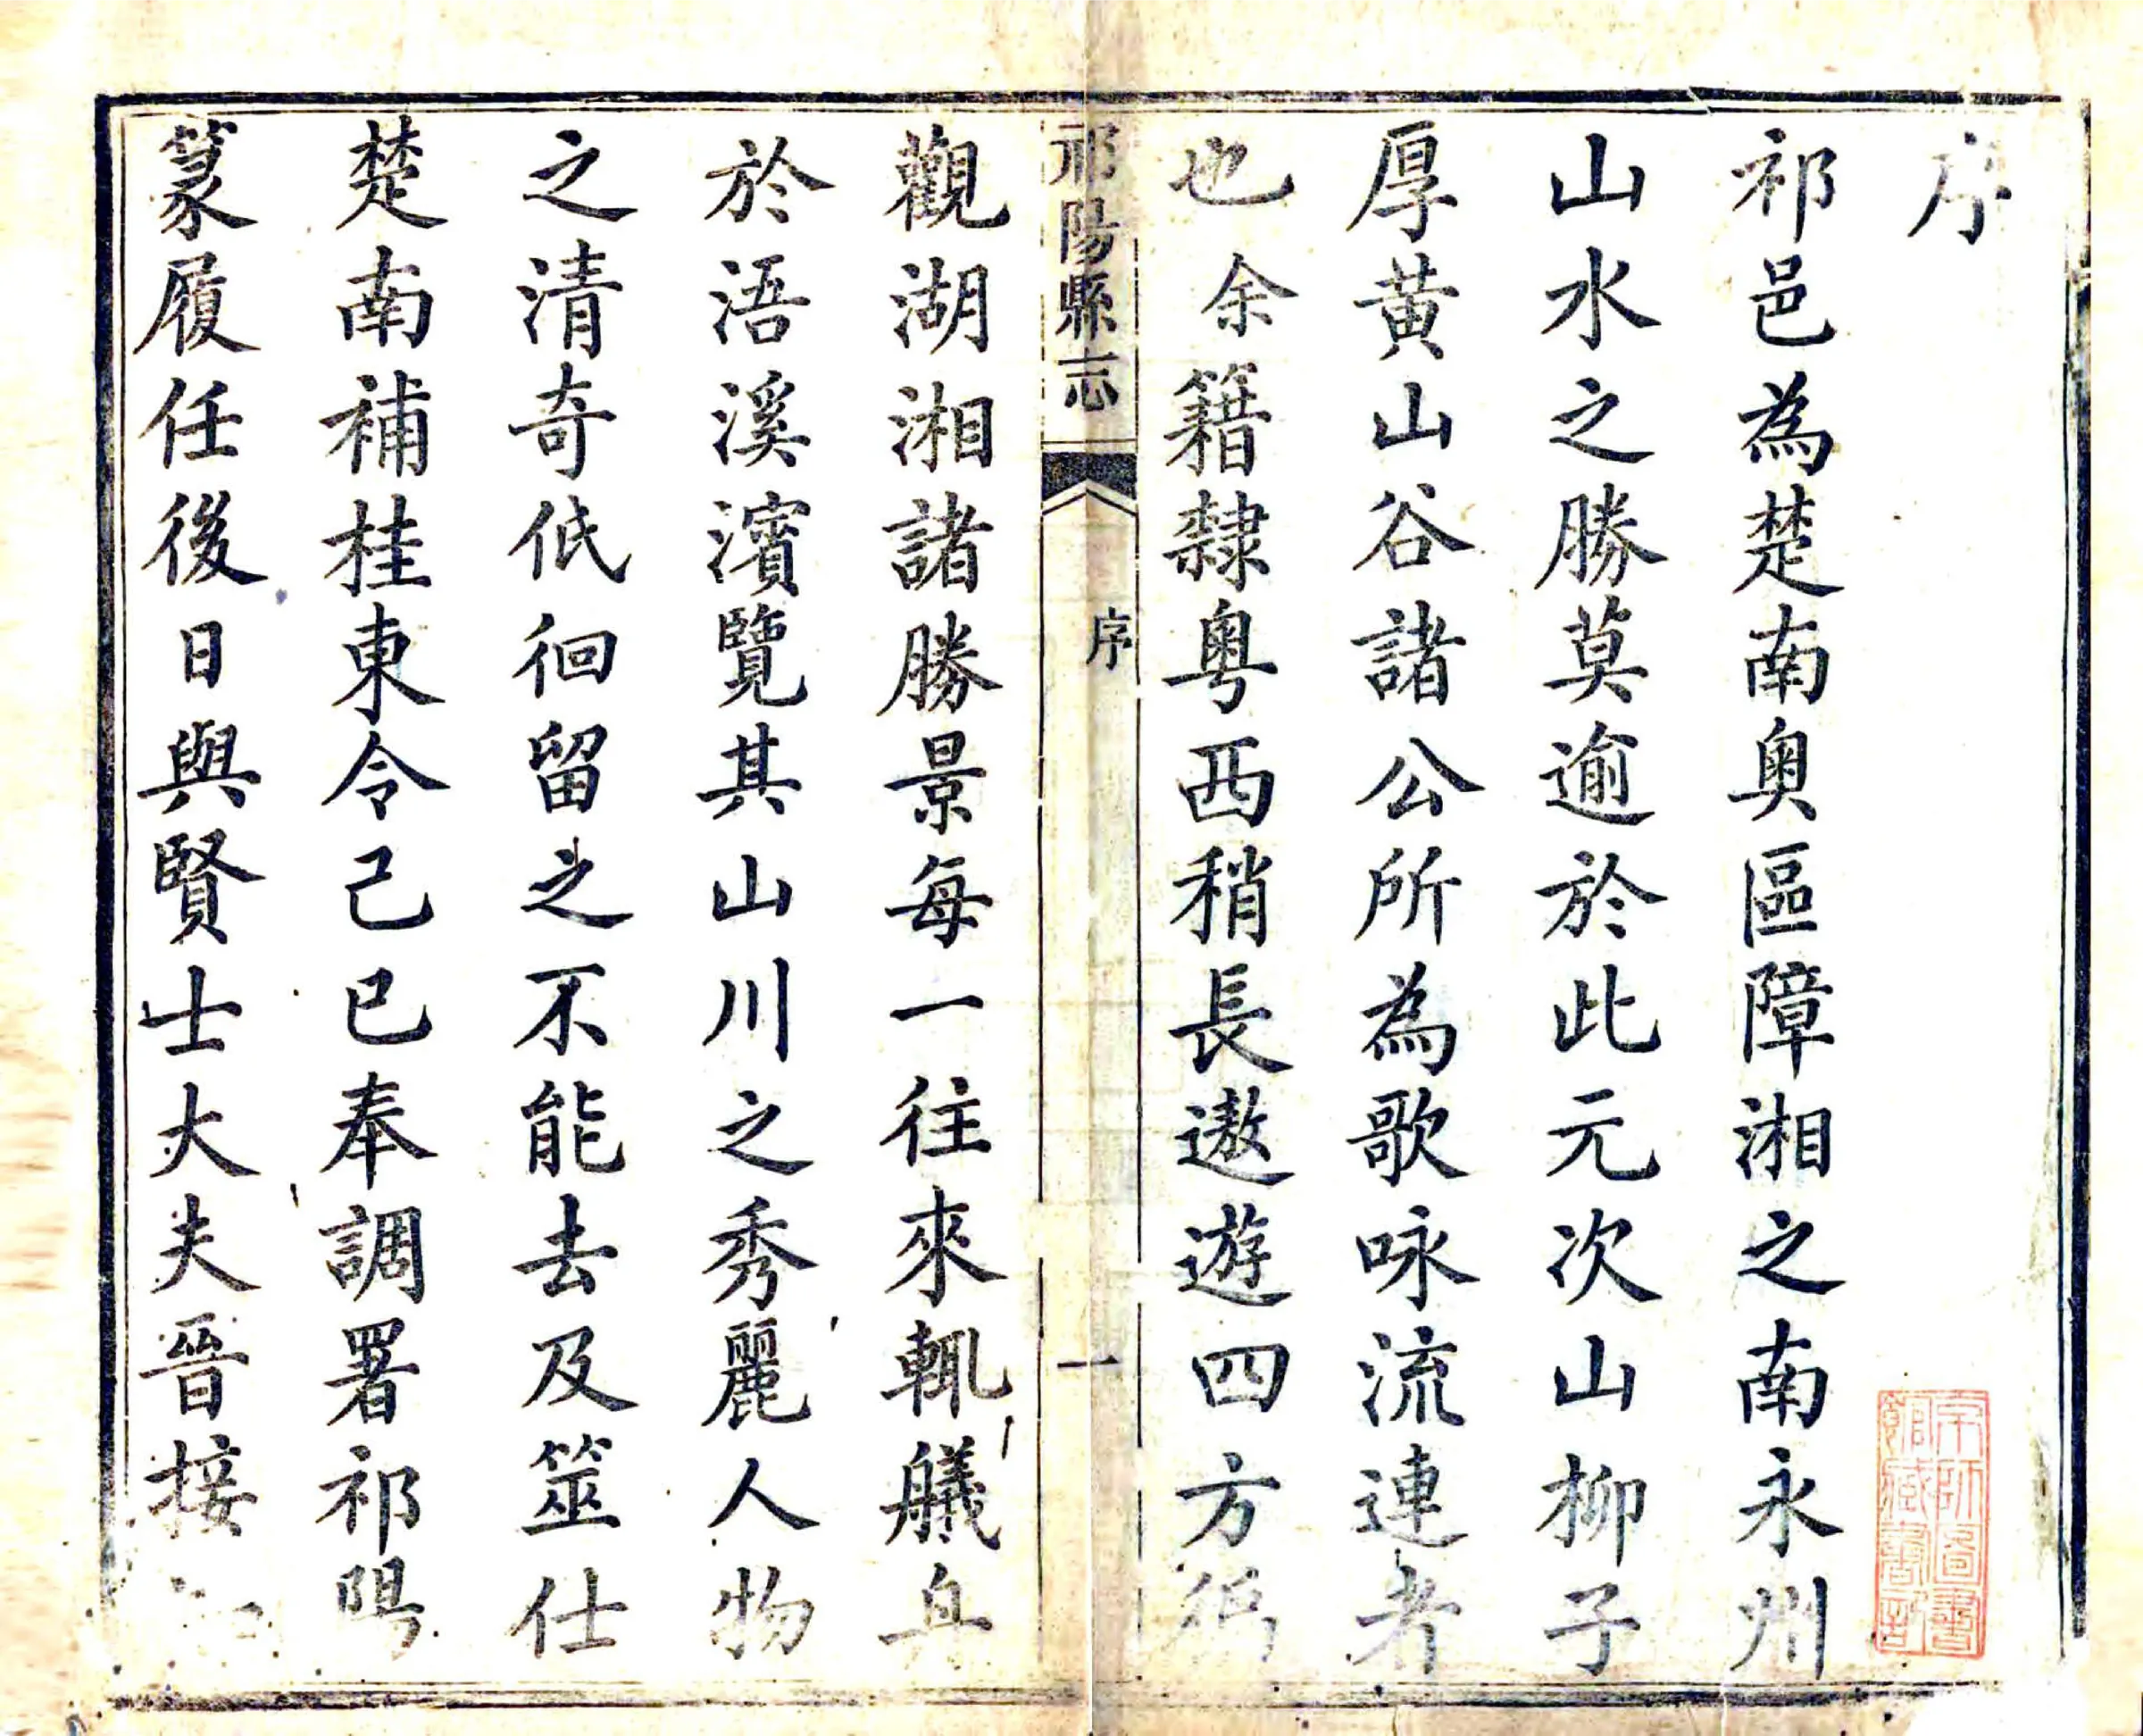 序
祁邑為楚南奥區障湘之南永州
山水之勝莫逾於此元次山柳子
厚黄山谷諸公所為歌咏流連者
也余籍隸粤西稍長遨遊四方
祁陽縣志
序
一
觀湖湘諸勝景每一往來輒艤舟
於浯溪濱覽其山川之秀麗人物
之清奇低徊留之不能去及筮仕
楚南補桂東令己巳奉調署祁陽
篆履任後日與賢士大夫晉接